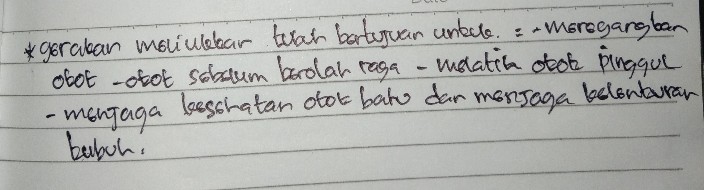 * gerakan meliukkan tubuh bertujuan untuk. : - meregangkan
otot - otot sebelum berolah raga - melatih otot pinggul
- menjaga kesehatan otot bahu dan menjaga kelenturan
tubuh.